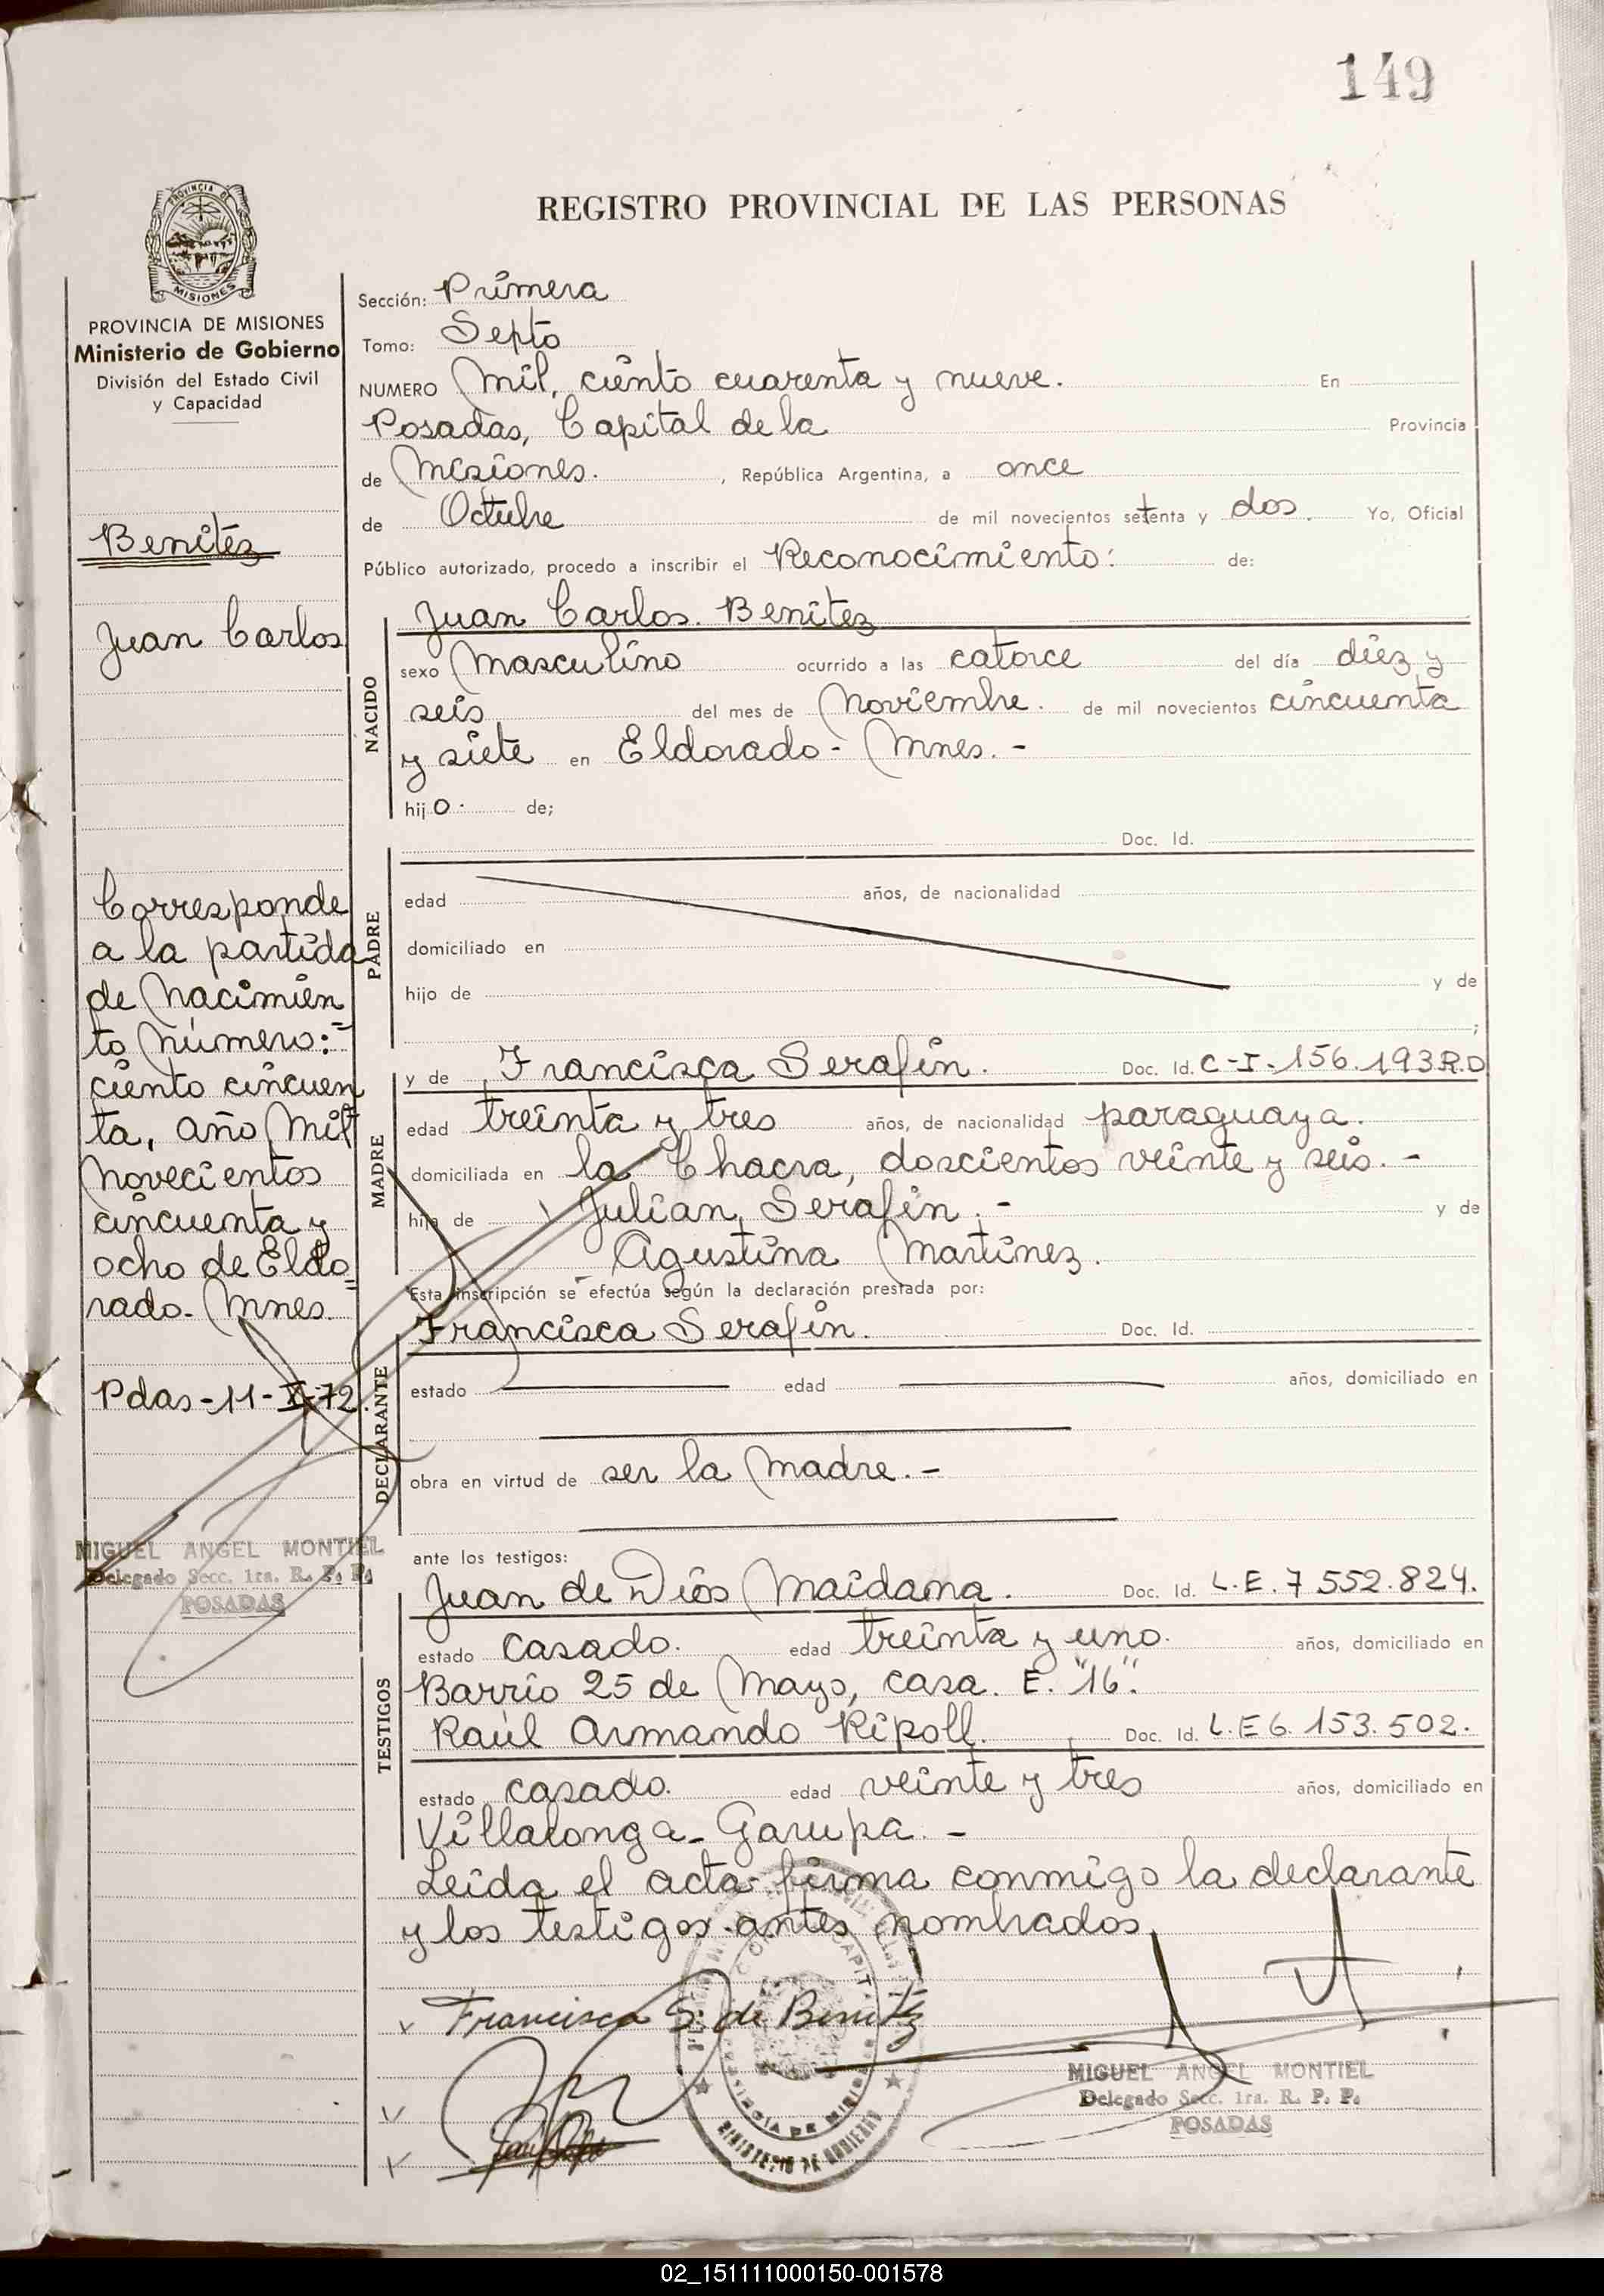 149
PROVINCIA DE
MISIONES
REGISTRO PROVINCIAL DE LAS PERSONAS
PROVINCIA DE MISIONES
Ministerio de Gobierno
División del Estado Civil
y Capacidad
Benítez
Juan Carlos
Corresponde
a la partida
de Nacimien
to Número:-
ciento cincuen
ta, año Mil
Novecientos
cincuenta y
ocho de Eldo
rado- Mnes.
Pdas-11-X-72.
MIGUEL ANGEL MONTIEL
Delegado Secc. 1ra. R. P. P.
POSADAS
Sección: Primera
Tomo: Septo
NUMERO Mil, ciento cuarenta y nueve. En
Posadas, Capital de la Provincia
de Misiones. , República Argentina, a once
de Octubre de mil novecientos setenta y dos. Yo, Oficial
Público autorizado, procedo a inscribir el Reconocimiento: de:
NACIDO
Juan Carlos. Benítez
sexo Masculino ocurrido a las catorce del día diez y
seis del mes de Noviembre. de mil novecientos cincuenta
y siete en Eldorado- Mnes.-
hijo. de;
PADRE
Doc. Id.
edad años, de nacionalidad
domiciliado en
hijo de y de
;
MADRE
y de Francisca Serafin. Doc. Id. C-I-156.193R.O
edad treinta y tres años, de nacionalidad paraguaya.
domiciliada en la Chacra, doscientos veinte y seis.-
hija de Julian Serafin.- y de
Agustina Martinez.
Esta inscripción se efectúa según la declaración prestada por:
DECLARANTE
Francisca Serafin. Doc. Id.
estado edad años, domiciliado en
obra en virtud de ser la Madre.-
ante los testigos:
TESTIGOS
Juan de Dios Maidana. Doc. Id. L.E.7 552.824.
estado casado. edad treinta y uno. años, domiciliado en
Barrio 25 de Mayo, casa. E. "16".
Raúl Armando Ripoll. Doc. Id. L.E6.153.502.
estado casado. edad veinte y tres años, domiciliado en
Villalonga- Garupa.-
Leida el acta firma conmigo la declarante
y los testigos antes nombrados
Francisca S. de Benitez
MIGUEL ANGEL MONTIEL
Delegado Secc. 1ra. R. P. P.
POSADAS
PROVINCIA DE MISIONES
MINISTERIO DE GOBIERNO
02_151111000150-001578